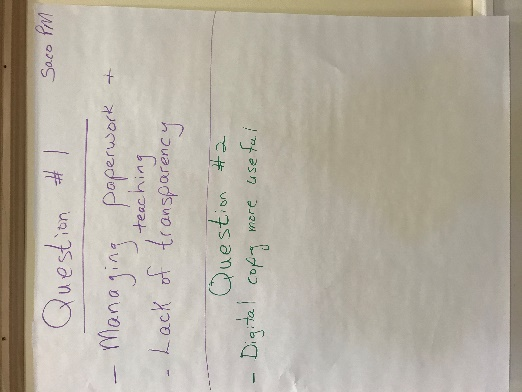 Saco PM
Question #1
- Managing paperwork +
teaching
- Lack of transparency
Question #2
- Digital copy more useful